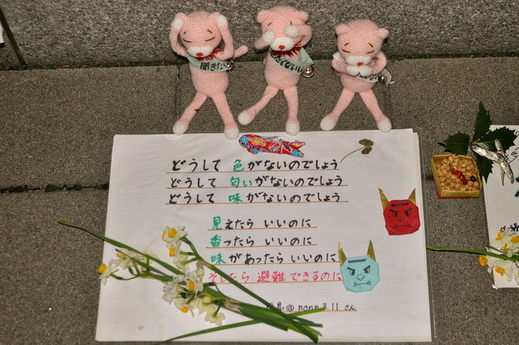 どうして 色がないのでしょう
どうして 匂いがないのでしょう
どうして 味がないのでしょう
見えたら いいのに
香ったら いいのに
味があったら いいのに
そしたら 避難できるのに
@nonn311さん